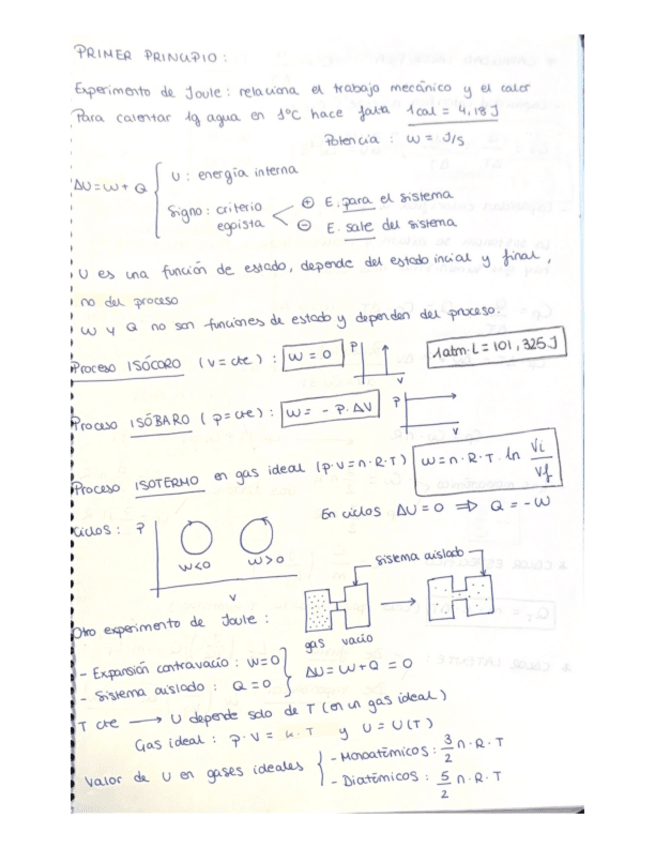 PRIMER PRINCIPIO:
Experimento de Joule: relaciona el trabajo mecánico y el calor
Para calentar 1g agua en 1°C hace falta 1 cal = 4,18 J
Potencia: W = J/s
ΔU = W + Q { U: energía interna
Signo: criterio egoista < ⊕ E. para el sistema
⊖ E. sale del sistema
U es una función de estado, depende del estado incial y final,
no del proceso
W y Q no son funciones de estado y dependen del proceso.
Proceso ISÓCORO (V = cte): W = 0 P V 1atm·L = 101,325 J
Proceso ISÓBARO (p = cte): W = - P. ΔV P V
Proceso ISOTERMO en gas ideal (p·V = n·R·T) W = n·R·T·ln Vi/Vf
Ciclos: P W<0 W>0 V En ciclos ΔU = 0 ⇒ Q = -W
sistema aislado
Otro experimento de Joule:
gas vacío
- Expansión contravacío: W=0
- Sistema aislado: Q = 0 } ΔU = W + Q = 0
T cte → U depende solo de T (en un gas ideal)
Gas ideal: p·V = k·T y U = U(T)
Valor de U en gases ideales { - Monoatómicos: 3/2 n·R·T
- Diatómicos: 5/2 n·R·T